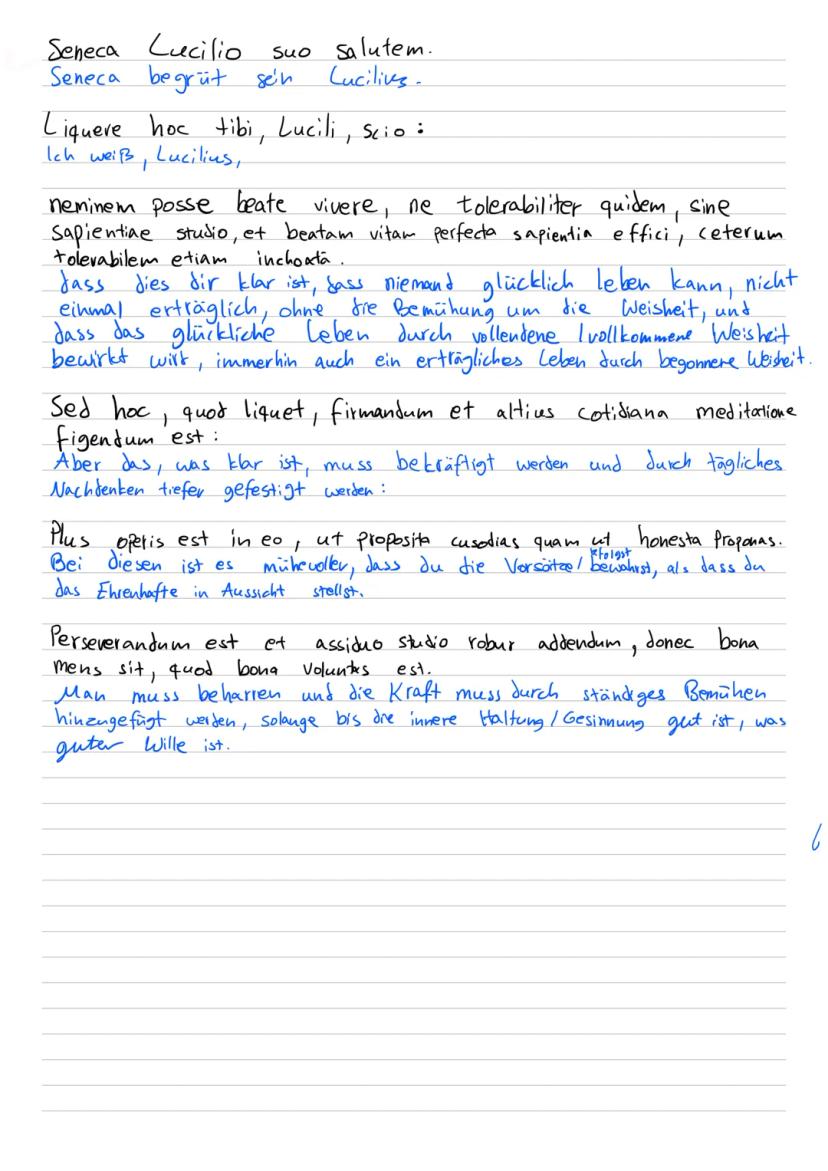 Seneca Lucilio suo salutem.
Seneca begrüt sein Lucilius.
Liquere hoc tibi, Lucili, scio:
Ich weiß, Lucilius,
neminem posse beate vivere, ne tolerabiliter quidem, sine
sapientiae studio, et beatam vitam perfecta sapientia effici, ceterum
tolerabilem etiam inchoata.
dass dies dir klar ist, dass niemand glücklich leben kann, nicht
einmal erträglich, ohne die Bemühung um die Weisheit, und
dass das glückliche Leben durch vollendene / vollkommene Weisheit
bewirkt wirt, immerhin auch ein erträgliches Leben durch begonnene Weisheit.
Sed hoc, quod liquet, firmandum et altius cotidiana meditatione
figendum est:
Aber das, was klar ist, muss bekräftigt werden und durch tägliches
Nachdenken tiefer gefestigt werden:
Plus operis est in eo, ut proposita cusodias quam ut honesta Proponas.
efolgst
Bei diesen ist es mühevoller, dass du die Vorsätze/ bewahrst, als dass du
das Ehrenhafte in Aussicht stellst.
Perseverandum est et assiduo studio robur addendum, donec bona
mens sit, quod bona voluntas est.
Man muss beharren und die Kraft muss durch ständiges Bemühen
hinzugefügt werden, solange bis die innere Haltung/Gesinnung gut ist, was
guter Wille ist.